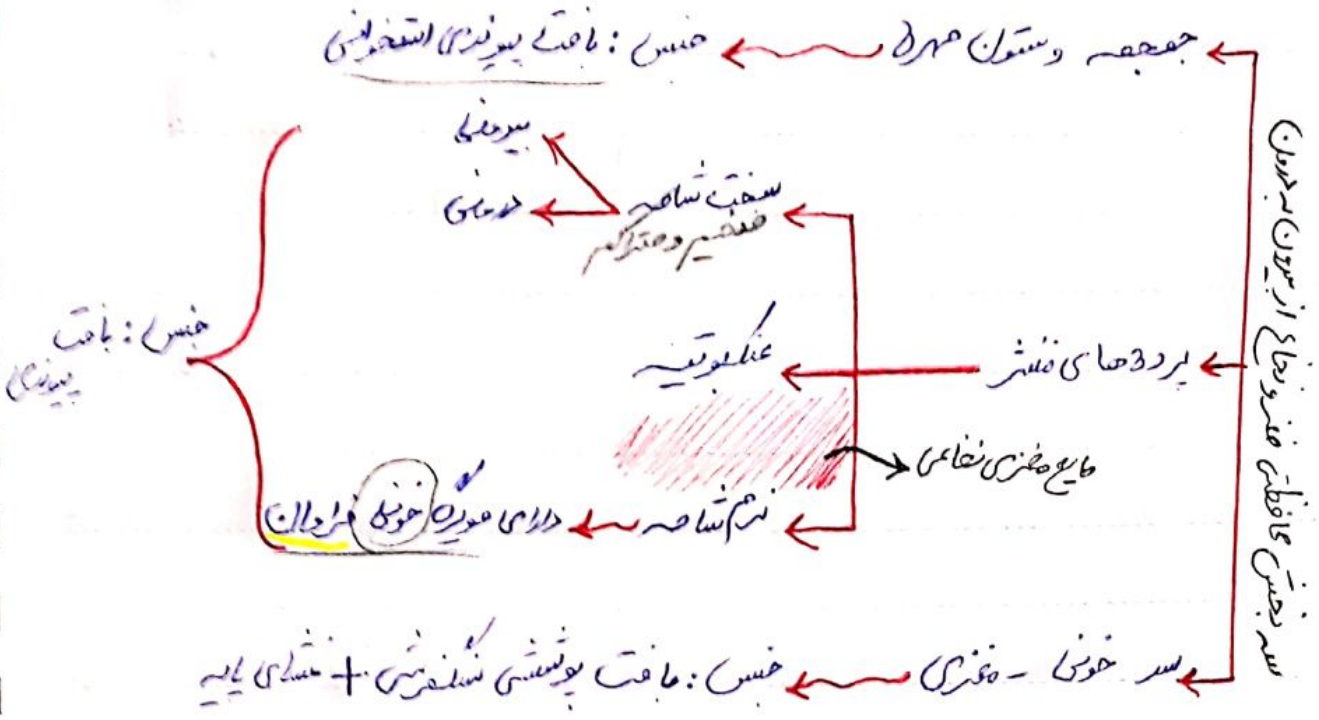 سه بخش حفاظتی مغز و نخاع از بیرون به درون
جمجمه و ستون مهره
جنس : بافت پیوندی استخوانی
پرده‌های مننژ
سخت شامه
ضخیم و متراکم
بیرونی
درونی
عنکبوتیه
مایع مغزی نخاعی
نرم شامه
دارای مویرگ خونی فراوان
جنس : بافت
پیوندی
سد خونی - مغزی
جنس : بافت پوششی سنگفرشی + غشای پایه